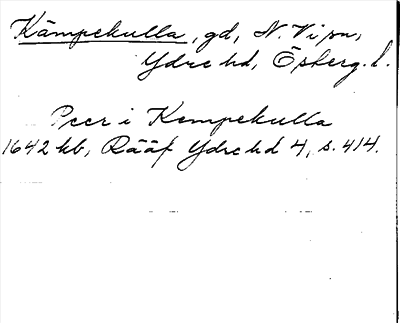 Kämpekulla, gd, N. Vi sn,
Ydre hd, Östberg. l.
Peer i Kempekulla
1642 kb, Rääf Ydre hd 4, s. 414.